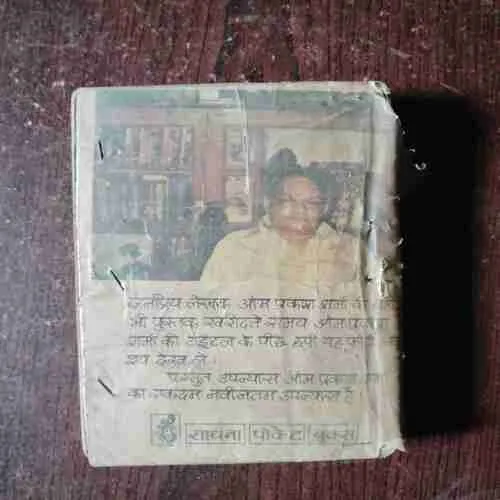 जनप्रिय लेखक ओम प्रकाश शर्मा की
भी पुस्तक खरीदते समय ओम प्रकाश
शर्मा की टाइटल के पीछे छपी यह फोटो
देख लें।
प्रस्तुत उपन्यास ओम प्रकाश
का एकदम नवीनतम उपन्यास है।
साधना पॉकेट बुक्स